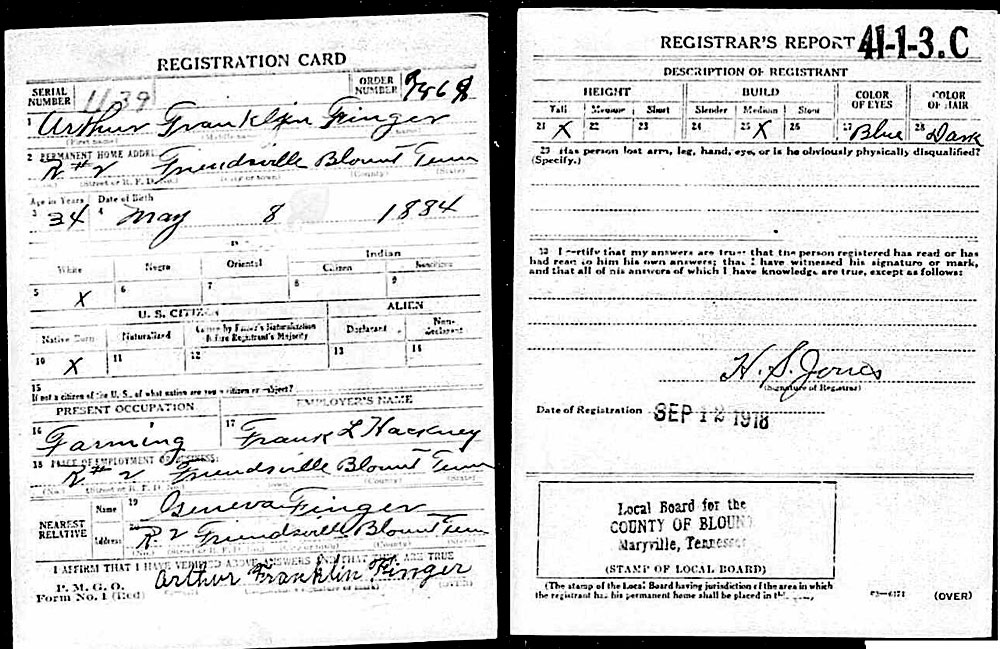 REGISTRATION CARD
SERIAL NUMBER 1139
ORDER NUMBER
1 Arthur Franklin Finger
(First name) (Middle name)
2 PERMANENT HOME ADDRESS
R #2 Friendsville Blount Tenn
(No.) (Street or R. F. D. No.) (City or town) (County) (State)
Age in Years Date of Birth
3 34 4 May 8 1884
White Negro Oriental Indian
Citizen
5 X 6 7 8 9
U. S. CITIZEN ALIEN
Native Born Naturalized Citizen by Father's Naturalization Before Registrant's Majority Declarant Non-declarant
10 X 11 12 13 14
15
If not a citizen of the U. S., of what nation are you a citizen or subject?
PRESENT OCCUPATION EMPLOYER'S NAME
16 Farming 17 Frank L Hackney
18 PLACE OF EMPLOYMENT OR BUSINESS:
R. #2 Friendsville Blount Tenn
(No.) (Street or R. F. D. No.) (County) (State)
NEAREST RELATIVE
Name 19 Geneva Finger
Address 20 R. 2 Friendsville Blount Tenn
I AFFIRM THAT I HAVE VERIFIED ABOVE ANSWERS AND THAT THEY ARE TRUE
P. M. G. O.
Form No. 1 (Red)
Arthur Franklin Finger
REGISTRAR'S REPORT 41-1-3.C
DESCRIPTION OF REGISTRANT
HEIGHT BUILD COLOR OF EYES COLOR OF HAIR
Tall Medium Short Slender Medium Stout
21 X 22 23 24 25 X 26 27 Blue 28 Dark
29 Has person lost arm, leg, hand, eye, or is he obviously physically disqualified?
(Specify.)
30 I certify that my answers are true; that the person registered has read or has
had read to him his own answers; that I have witnessed his signature or mark,
and that all of his answers of which I have knowledge are true, except as follows:
H. S. Jones
(Signature of Registrar)
Date of Registration SEP 12 1918
Local Board for the
COUNTY OF BLOUNT
Maryville, Tennessee
(STAMP OF LOCAL BOARD)
(The stamp of the Local Board having jurisdiction of the area in which
the registrant has his permanent home shall be placed in
(OVER)